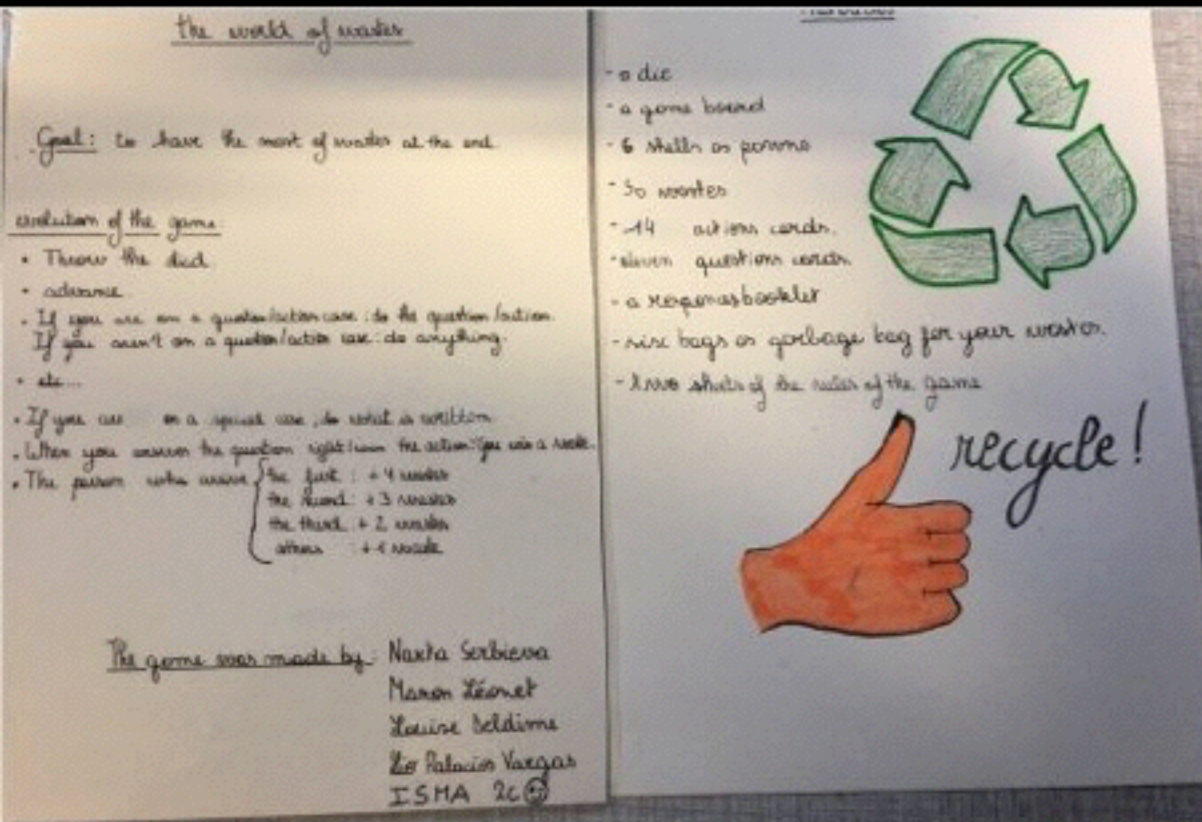 the world of wastes
Goal: to have the most of wastes at the end.
evolution of the game:
• Throw the died
• advance
• If you are on a question/action case: do the question/action.
If you aren't on a question/action case: do anything.
• etc...
• If you are on a special case, do what is written
• When you answer the question right/win the action: You win a waste.
• The person who arrive
the first : + 4 wastes
the second: + 3 wastes
the third : + 2 wastes
others : + 1 waste
The game was made by: Naxta Serbieva
Manon Léonet
Louise Deldime
Léo Palacios Vargas
ISMA 2C
- a die
- a game board
- 6 shells as pawns
- 50 wastes
- 14 actions cards.
- eleven questions cards
- a responses booklet
- sixe bags as garbage bag for your wastes.
- two shets of the rules of the game
recycle!